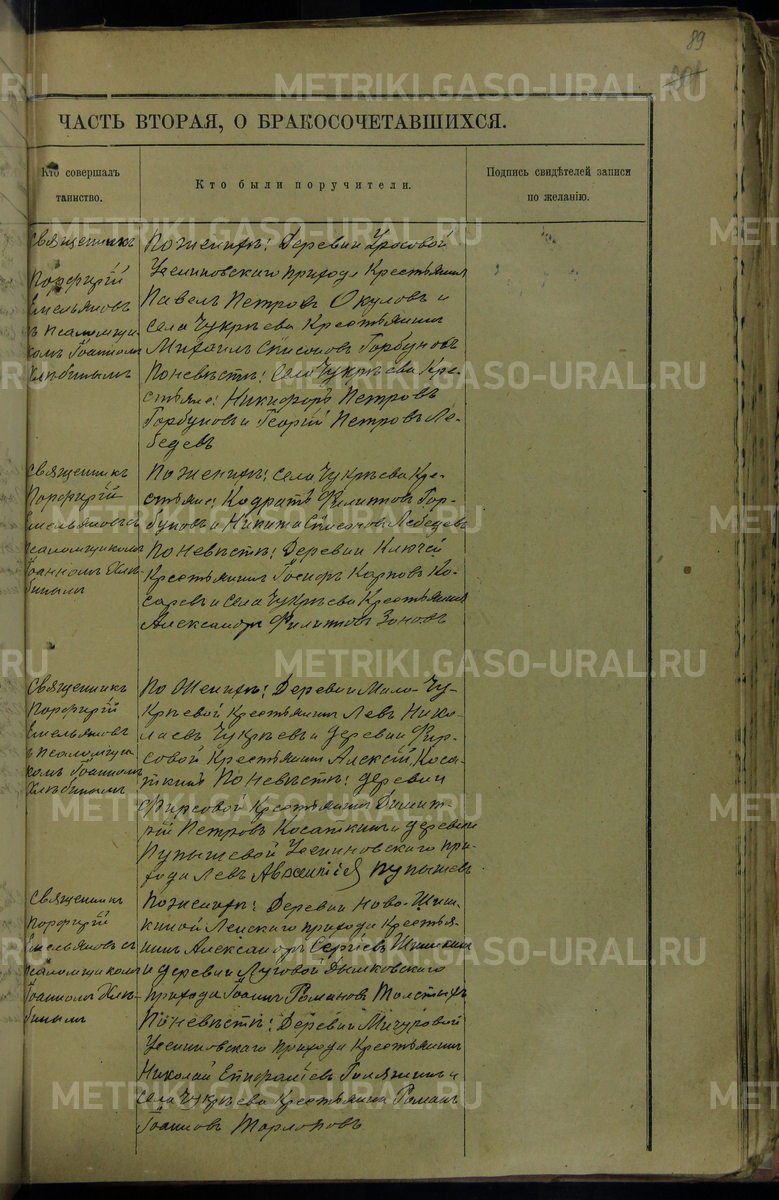 89
ЧАСТЬ ВТОРАЯ, О БРАКОСОЧЕТАВШИХСЯ.
Кто совершалъ
таинство.
Кто были поручители.
Подпись свидѣтелей записи
по желанію.
Священникъ
Порфирій
Емельяновъ
съ псаломщи-
комъ Іоанномъ
Хлѣбинымъ
По женихѣ: Деревни Уросовой
Успеновскаго прихода Крестьянинъ
Павелъ Петровъ Окуловъ и
села Чукрѣева Крестьянинъ
Михаилъ Горбуновъ
По невѣстѣ: Села Чукрѣева Кре-
стьяне: Никифоръ Петровъ
Горбуновъ и Георгій Петровъ Ле-
бедевъ
Священникъ
Порфирій
Емельяновъ съ
псаломщикомъ
Іоанномъ Хлѣ-
бинымъ
По женихѣ: села Чукрѣева Кре-
стьяне: Кодратъ Филиповъ Гор-
буновъ и Никита Лебедевъ
По невѣстѣ: Деревни Ключей
Крестьянинъ Іосифъ Карповъ Ко-
саревъ и села Чукрѣева Крестьянинъ
Александръ Филиповъ Зоновъ
Священникъ
Порфирій
Емельяновъ
съ псаломщи-
комъ Іоанномъ
Хлѣбинымъ
По Женихѣ: Деревни Мало-Чу-
крѣевой Крестьянинъ Левъ Нико-
лаевъ Чукрѣевъ и деревни Фир-
совой Крестьянинъ Алексій Коса-
ткинъ По невѣстѣ: деревни
Фирсовой Крестьянинъ Димит-
рій Петровъ Косаткинъ и деревни
Пупышевой прихо-
да Левъ Пупышевъ
Священникъ
Порфирій
Емельяновъ съ
псаломщикомъ
Іоанномъ Хлѣ-
бинымъ
По женихѣ: Деревни Ново-Шиш-
киной Ленскаго прихода Крестья-
нинъ Александръ Сергіевъ Шишкинъ
и деревни Луговой Дымковскаго
прихода Іоаннъ Романовъ Толстыхъ
По невѣстѣ: Деревни Мичуровой
прихода Крестьянинъ
Николай Епифаніевъ и
села Чукрѣева Крестьянинъ Романъ
Іоанновъ
METRIKI.GASO-URAL.RU